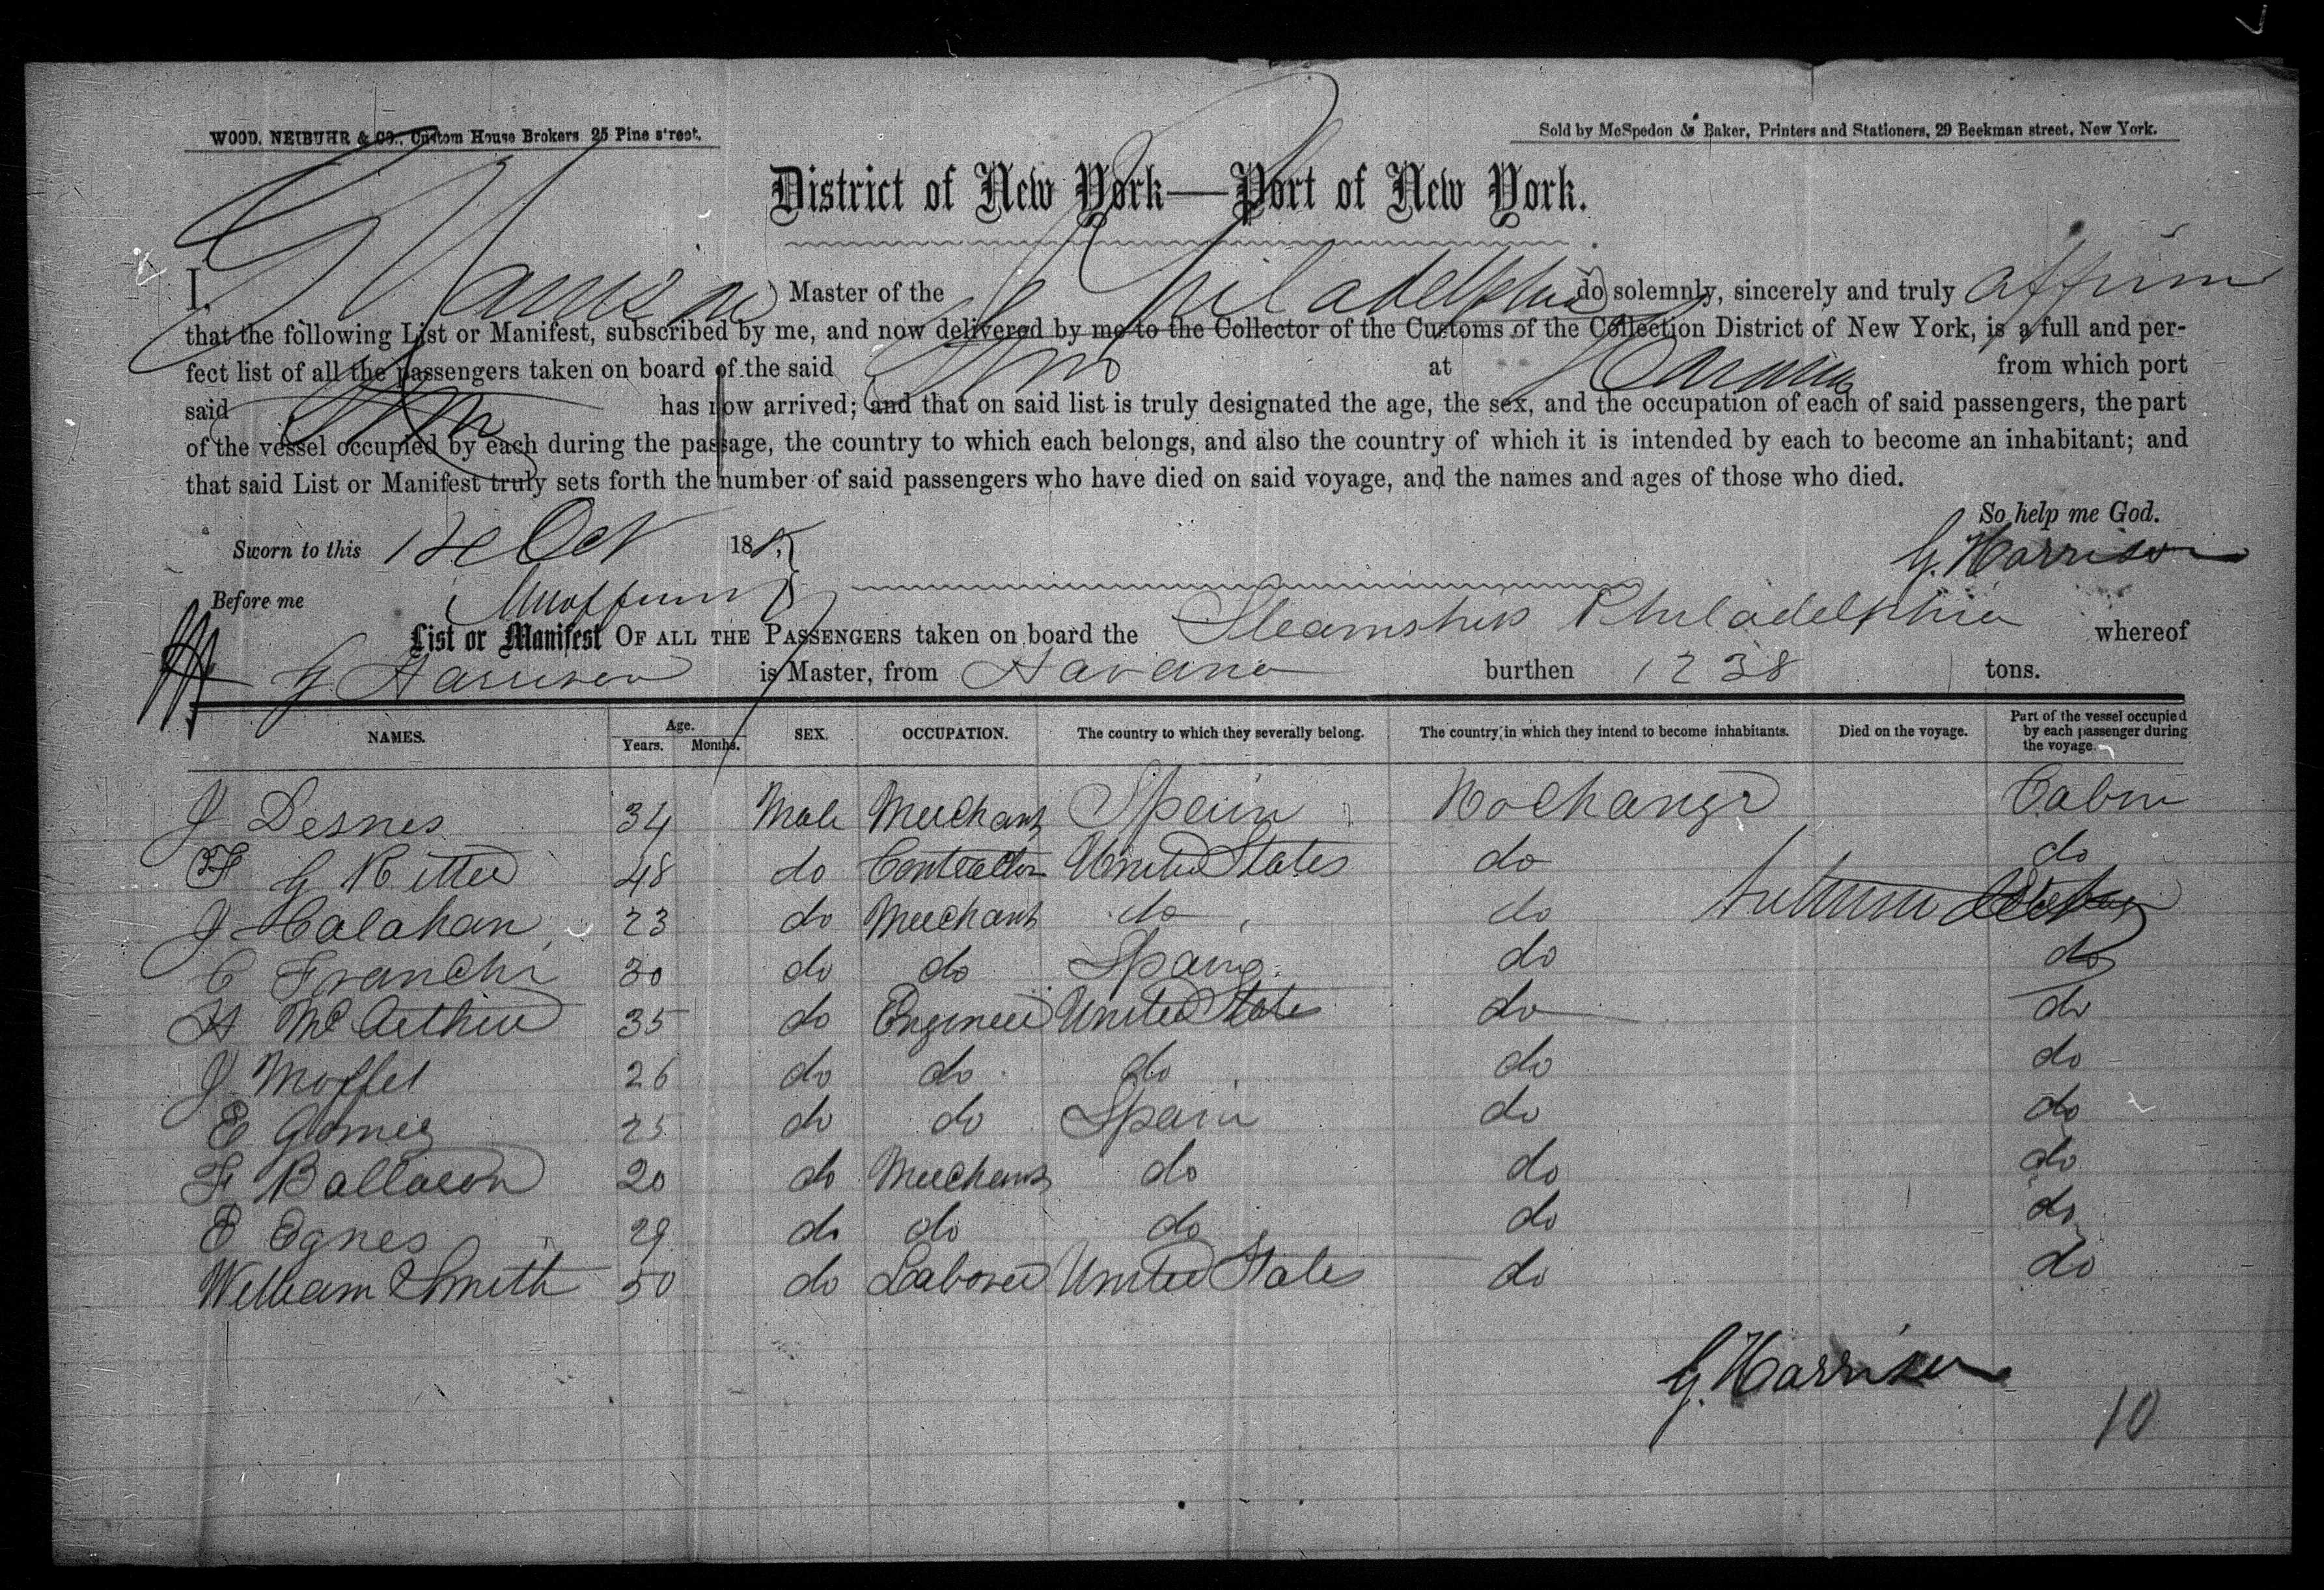 WOOD, NEIBUHR & CO., Custom House Brokers 25 Pine street.
Sold by McSpedon & Baker, Printers and Stationers, 29 Beekman street, New York.
District of New York—Port of New York.
I, G Harrison Master of the Philadelphia do solemnly, sincerely and truly affirm
that the following List or Manifest, subscribed by me, and now delivered by me to the Collector of the Customs of the Collection District of New York, is a full and per-
fect list of all the passengers taken on board of the said Stm at Havana from which port
said Stm has now arrived; and that on said list is truly designated the age, the sex, and the occupation of each of said passengers, the part
of the vessel occupied by each during the passage, the country to which each belongs, and also the country of which it is intended by each to become an inhabitant; and
that said List or Manifest truly sets forth the number of said passengers who have died on said voyage, and the names and ages of those who died.
So help me God.
Sworn to this 12 Oct 18
G. Harrison
Before me
List or Manifest OF ALL THE PASSENGERS taken on board the Steamship Philadelphia whereof
G Harrison is Master, from Havana burthen 1238 tons.
NAMES. Age. Years. Months. SEX. OCCUPATION. The country to which they severally belong. The country in which they intend to become inhabitants. Died on the voyage. Part of the vessel occupied by each passenger during the voyage.
J Desnes 34 Male Merchant Spain No Change Cabin
F G Ritter 48 do Contractor United States do do
J Calahan 23 do Merchant do do
C Franchi 30 do do Spain do do
H McArthur 35 do Engineer United States do do
J Moffet 26 do do do do do
E Gomez 25 do do Spain do do
F Ballacon 20 do Merchant do do do
E Egnes 29 do do do do do
William Smith 50 do Laborer United States do do
G. Harrison
10